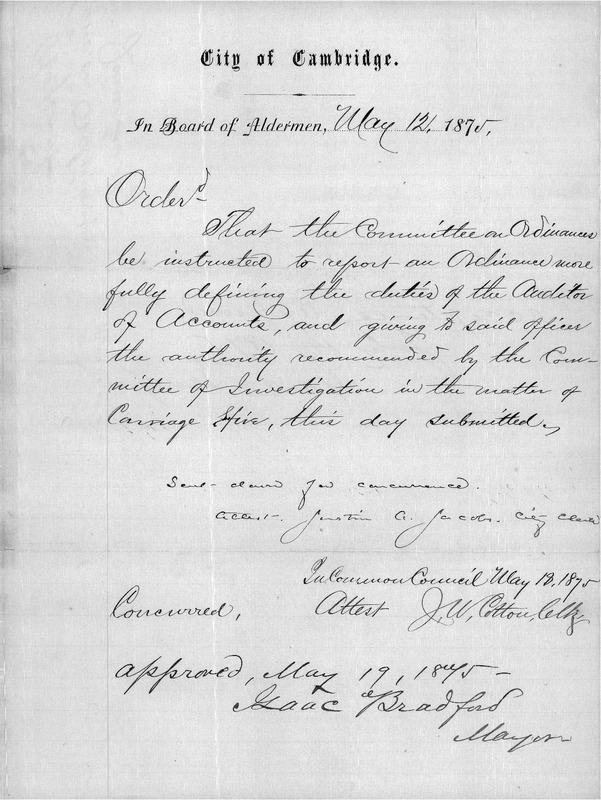 City of Cambridge.
In Board of Aldermen, May 12, 1875.
Order'd
That the Committee on Ordinances
be instructed to report an Ordinance more
fully defining the duties of the Auditor
of Accounts, and giving to said officer
the authority recommended by the Com-
mittee of Investigation in the matter of
Carriage Hire, this day submitted.
Sent down for concurrence.
Attest. Justin A. Jacobs. City Clerk
In Common Council May 12, 1875
Concurred, Attest J. W. Cotton, Clk
approved, May 19, 1875
Isaac Bradford
Mayor